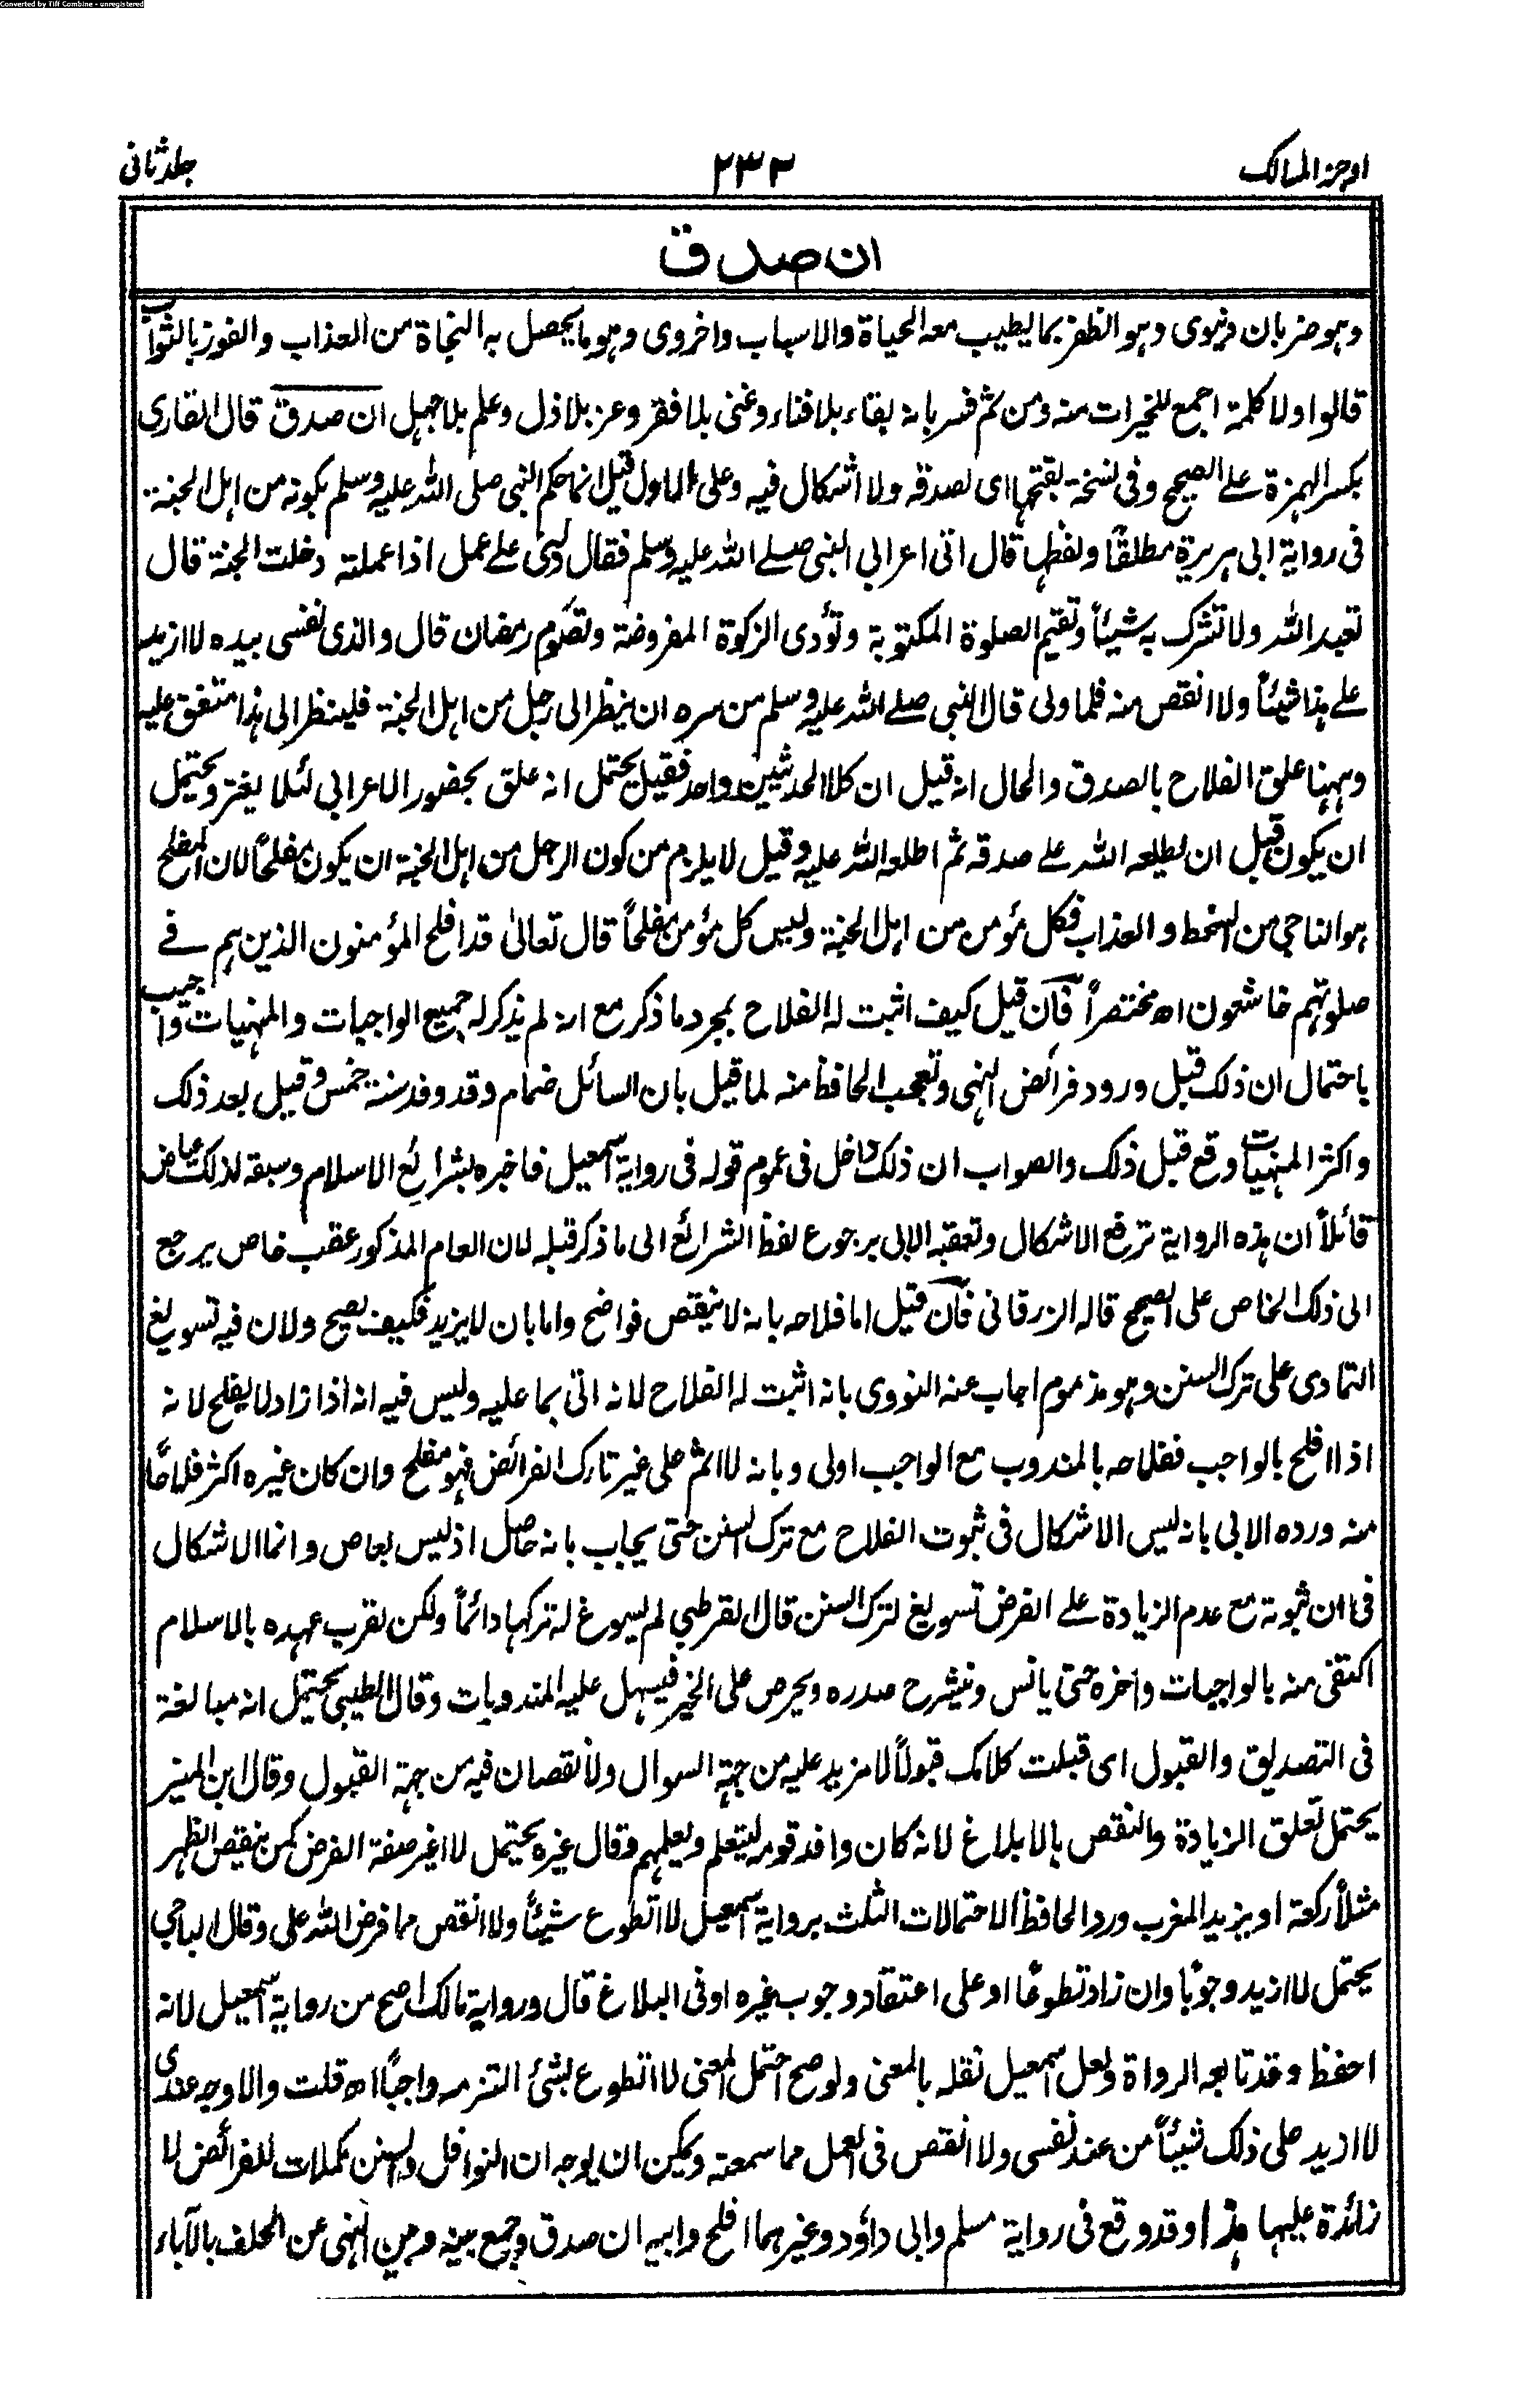 Converted by Tiff Combine - unregistered
اوجز المسالك
٢٣٢
جلد ثانى
ان صدق
وهو ضربان دنيوى وهو الظفر بما يطيب معه الحياة والاسباب واخروى وهو ما يحصل به النجاة من العذاب والفوز بالثواب
قالوا ولا كلمة اجمع للخيرات منه ومن ثم فسر بانه بقاء بلا فناء وغنى بلا فقر وعز بلا ذل وعلم بلا جهل ان صدق قال القارى
بكسر الهمزة على الصحيح وفى نسخة بفتحها اى لصدقه ولا اشكال فيه وعلى الاول قيل انما حكم النبى صلى الله عليه وسلم بكونه من اهل الجنة
فى رواية ابى هريرة مطلقًا ولفظها قال اتى اعرابى النبى صلى الله عليه وسلم فقال دلنى على عمل اذا عملته دخلت الجنة قال
تعبد الله ولا تشرك به شيئًا وتقيم الصلوة المكتوبة وتؤدى الزكوة المفروضة وتصوم رمضان قال والذى نفسى بيده لا ازيد
على هذا شيئًا ولا انقص منه فلما ولى قال النبى صلى الله عليه وسلم من سره ان ينظر الى رجل من اهل الجنة فلينظر الى هذا متفق عليه
وههنا علق الفلاح بالصدق والحال انه قيل ان كلا الحديثين واحد فقيل يحتمل انه علق بحضور الاعرابى لئلا يغتر ويحتمل
ان يكون قبل ان يطلعه الله على صدقه ثم اطلعه الله عليه وقيل لا يلزم من كون الرجل من اهل الجنة ان يكون مفلحًا لان المفلح
هو الناجى من السخط والعذاب فكل مؤمن من اهل الجنة وليس كل مؤمن مفلحًا قال تعالىٰ قد افلح المؤمنون الذين هم فى
صلوتهم خاشعون اه مختصرًا فان قيل كيف اثبت له الفلاح بمجرد ما ذكر مع انه لم يذكر له جميع الواجبات والمنهيات واجيب
باحتمال ان ذلك قبل ورود فرائض النهى وتعجب الحافظ منه لما قيل بان السائل ضمام وقد وفد سنة خمس وقيل بعد ذلك
واكثر المنهيات وقع قبل ذلك والصواب ان ذلك داخل فى عموم قوله فى رواية اسمعيل فاخبره بشرائع الاسلام وسبقه لذلك عياض
قائلاً ان هذه الرواية ترفع الاشكال وتعقبه الابى برجوع لفظ الشرائع الى ما ذكر قبله لان العام المذكور عقب خاص يرجع
الى ذلك الخاص على الصحيح قاله الزرقانى فان قيل اما فلاحه بانه لا ينقص فواضح واما بان لا يزيد فكيف يصح ولان فيه تسويغ
التمادى على ترك السنن وهو مذموم اجاب عنه النووى بانه اثبت له الفلاح لانه اتى بما عليه وليس فيه انه اذا زاد لا يفلح لانه
اذا افلح بالواجب ففلاحه بالمندوب مع الواجب اولى وبانه لا اثم على غير تارك الفرائض فهو مفلح وان كان غيره اكثر فلاحًا
منه ورده الابى بانه ليس الاشكال فى ثبوت الفلاح مع ترك السنن حتى يجاب بانه حاصل اذ ليس بعاص وانما الاشكال
فى ان ثبوته مع عدم الزيادة على الفرض تسويغ لترك السنن قال القرطبى لم يسوغ له تركها دائمًا ولكن لقرب عهده بالاسلام
اكتفى منه بالواجبات واخره حتى يانس وينشرح صدره ويحرص على الخير فيسهل عليه المندوبات وقال الطيبى يحتمل انه مبالغة
فى التصديق والقبول اى قبلت كلامك قبولًا لا مزيد عليه من جهة السوال ولا نقصان فيه من جهة القبول وقال ابن المنير
يحتمل تعلق الزيادة والنقص بالابلاغ لانه كان وافد قومه ليتعلم ويعلمهم وقال غيره يحتمل لا اغير صفة الفرض كمن ينقص الظهر
مثلاً ركعة او يزيد المغرب ورد الحافظ الاحتمالات الثلث برواية اسمعيل لا اتطوع شيئًا ولا انقص مما فرض الله على وقال الباجى
يحتمل لا ازيد وجوبًا وان زاد تطوعًا او على اعتقاد وجوب غيره او فى البلاغ قال ورواية مالك اصح من رواية اسمعيل لانه
احفظ وقد تابعه الرواة ولعل اسمعيل نقله بالمعنى ولو صح احتمل المعنى لا اتطوع بشئ التزمه واجبًا اه قلت والاوجه عندى
لا ازيد على ذلك شيئًا من عند نفسى ولا انقص فى العمل مما سمعته ويمكن ان يوجه ان النوافل والسنن مكملات للفرائض لا
زائدة عليها هذا وقد وقع فى رواية مسلم وابى داؤد وغيرهما افلح وابيه ان صدق وجمع بينه وبين النهى عن الحلف بالآباء